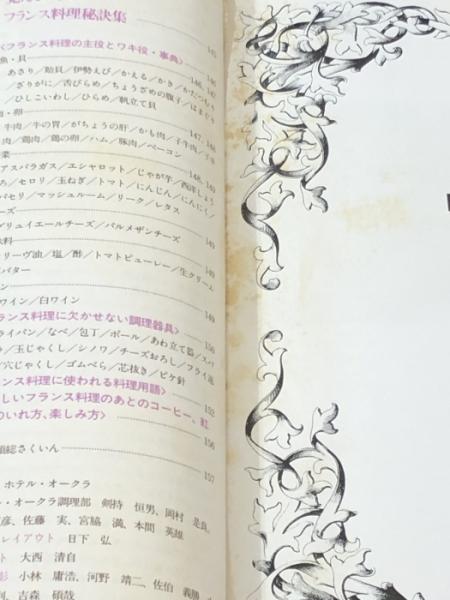 フランス料理秘訣集
〈フランス料理の主役とワキ役・事典〉 145
魚・貝 146, 147
あさり／飴貝／伊勢えび／かえる／かき／かたつむり
／ざりがに／舌びらめ／ちょうざめの腹子／はまぐり
／ひしこいわし／ひらめ／帆立て貝
肉・卵 147, 148
牛肉／牛の胃／がちょうの肝／かも肉／子牛肉／子羊
肉／鶏肉／鶏の卵／ハム／豚肉／ベーコン
菜 148, 149
アスパラガス／エシャロット／じゃが芋／西洋しょう
ろ／セロリ／玉ねぎ／トマト／にんじん／にんにく／
パセリ／マッシュルーム／リーク／レタス
ーズ 149
グリュイエールチーズ／パルメザンチーズ
味料 149
リーヴ油／塩／酢／トマトピューレー／生クリーム
バター
ン 149
ワイン／白ワイン
ランス料理に欠かせない調理器具〉 150
ライパン／なべ／包丁／ボール／あわ立て器／スパ
ラ／玉じゃくし／シノワ／チーズおろし／フライ返
／穴じゃくし／ゴムべら／芯抜き／ピケ針
ンス料理に使われる料理用語〉 152
しいフランス料理のあとのコーヒー、紅
のいれ方、楽しみ方〉 156
類総さくいん 157
ホテル・オークラ
ル・オークラ調理部 剣持 恒男、岡村 是良、
彦、佐藤 実、宮脇 満、本間 英雄
レイアウト 日下 弘
ト 大西 清自
影 小林 庸浩、河野 靖二、佐伯 義勝
利、吉森 碩哉